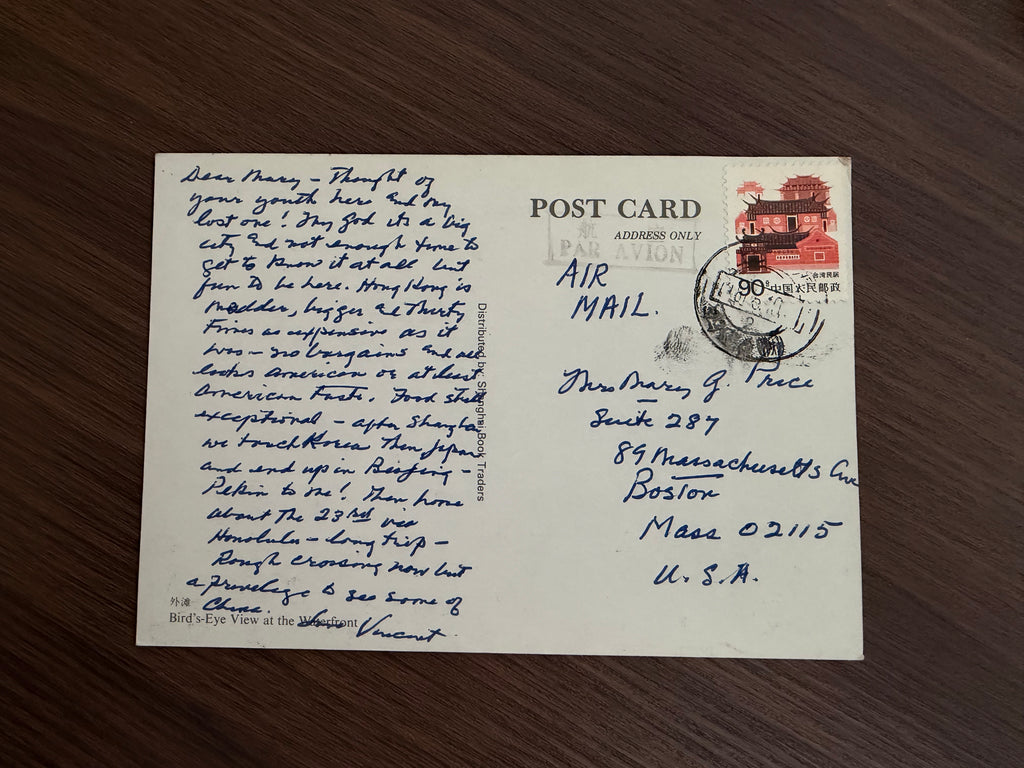 Dear Mary – Thought of
your youth here and my
lost one! My God its a big
city and not enough time to
get to know it at all but
fun to be here. Hong Kong is
madder, bigger & Thirty
Times as expensive as it
was – no bargains and all
looks American or at least
American taste. Food still
exceptional – after Shanghai
we touch Korea Then Japan
and end up in Beijing –
Pekin to me! Then home
about The 23rd via
Honolulu – long trip –
Rough crossing now but
a privelege to see some of
China.
Love Vincent
外滩
Bird's-Eye View at the Waterfront
Distributed by: Shanghai Book Traders
POST CARD
ADDRESS ONLY
航
PAR AVION
AIR
MAIL.
台湾民居
90分 中国人民邮政
Mrs Mary G. Price
Suite 287
89 Massachusetts Ave
Boston
Mass 02115
U.S.A.